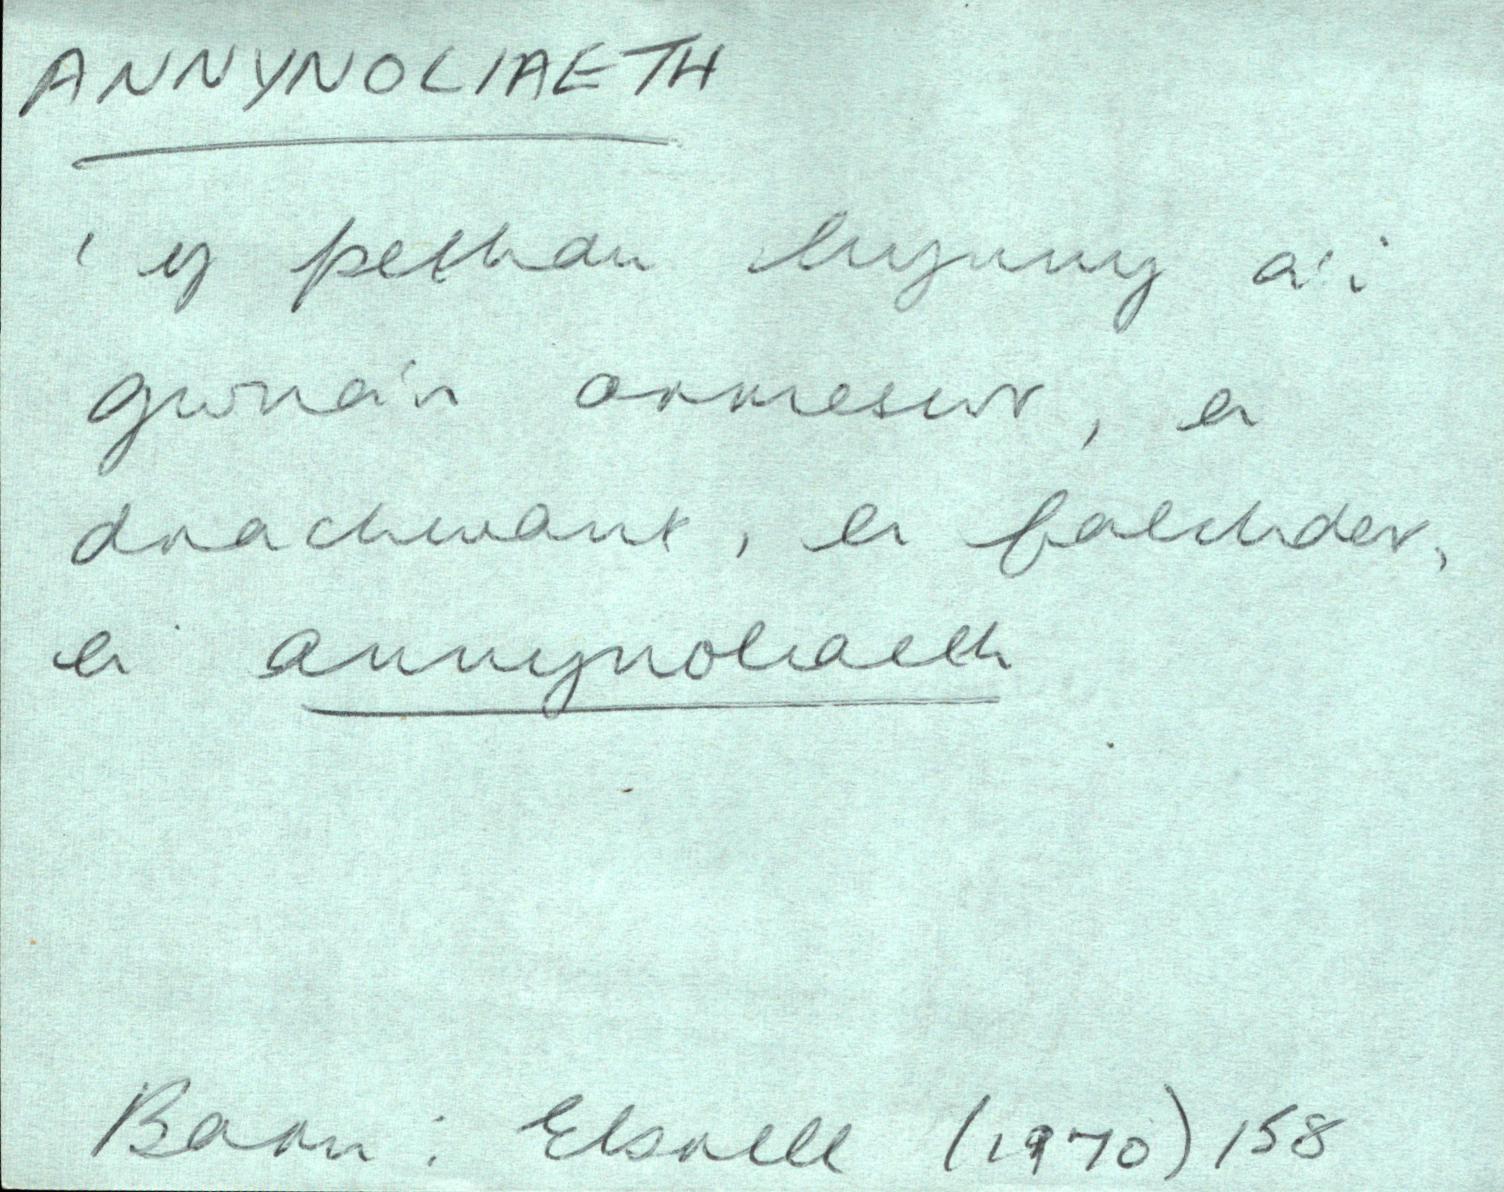 ANNYNOLIAETH
' y pethau hynny a'i
gwnâi ormeswr, ei
drachwant, ei falchder,
ei annynoliaeth
Barn: Ebrill (1970) 158